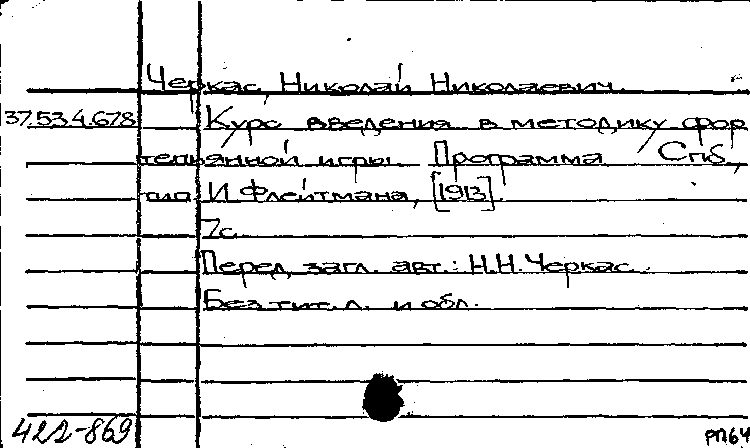 Черкас, Николай Николаевич.
37.53.4.678 Курс введения в методику фор
тепьянной игры. Программа. Спб.,
тип. И. Флейтмана, [1913].
7с.
Перед загл. авт.: Н.Н. Черкас.
Без тит. л. и обл.
422-869
РП64